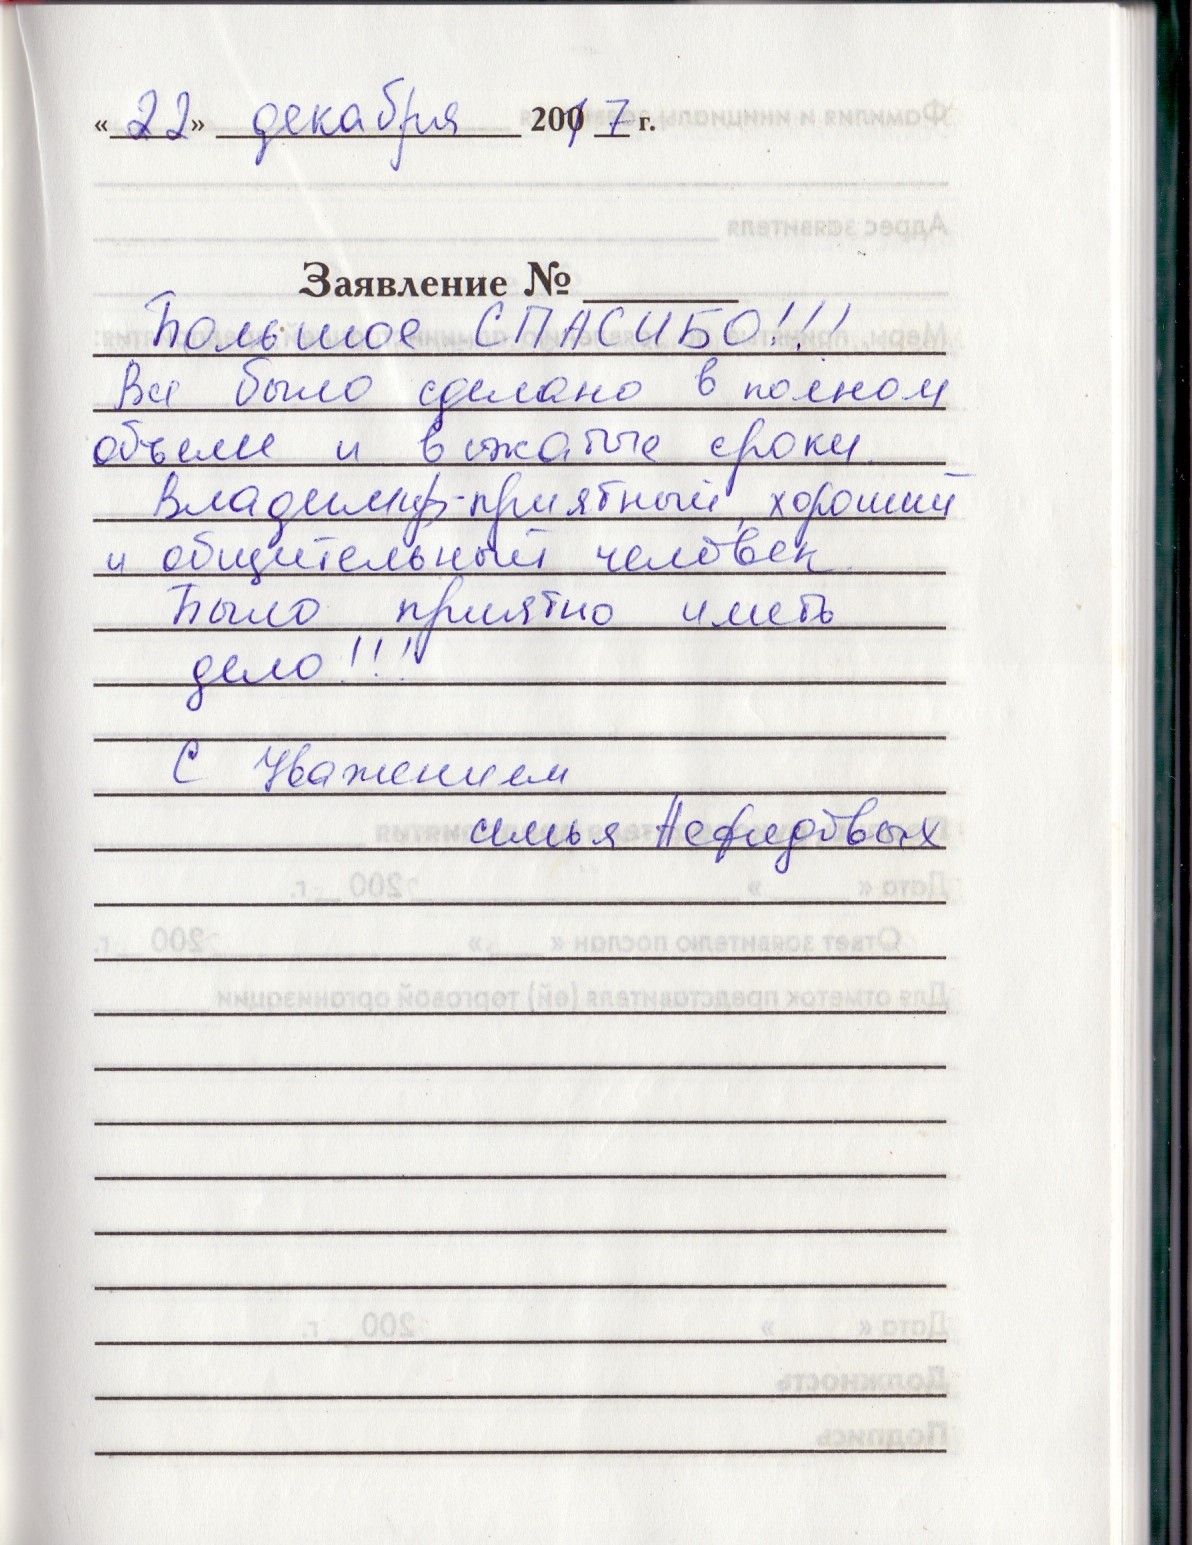 «22» декабря 2017 г.
Заявление №
Большое СПАСИБО!!!
Все было сделано в полном
объеме и в сжатые сроки.
Владимир - приятный, хороший
и общительный человек.
Было приятно иметь
дело!!!
С Уважением
семья